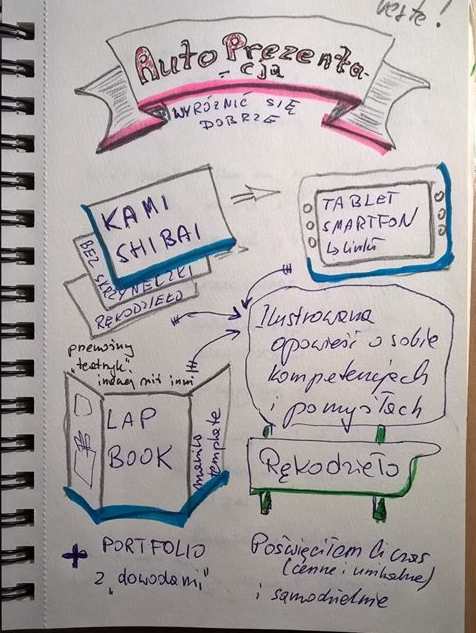 Auto Prezenta-
- cja
WYRÓŻNIĆ SIĘ
DOBRZE
KAMI
SHIBAI
BEZ SKRZYNECZKI
RĘKODZIEŁO
TABLET
SMARTFON
↳ linki
przenośny
"teatrzyk"
inaczej niż inni
Ilustrowana
opowieść o sobie
kompetencjach
i pomysłach
LAP
BOOK
template
Rękodzieło
+ PORTFOLIO
z "dowodami"
Poświęciłem Ci czas
(cenne i unikalne)
i samodzielnie